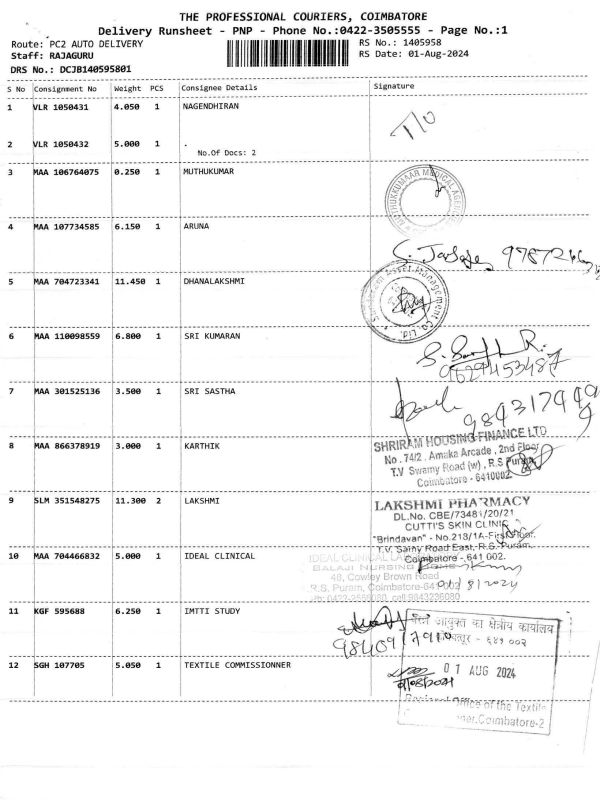 THE PROFESSIONAL COURIERS, COIMBATORE
Delivery Runsheet - PNP - Phone No.:0422-3505555 - Page No.:1
Route: PC2 AUTO DELIVERY
RS No.: 1405958
Staff: RAJAGURU
RS Date: 01-Aug-2024
DRS No.: DCJB140595801
S No Consignment No Weight PCS Consignee Details Signature
1 VLR 1050431 4.050 1 NAGENDHIRAN
T/O
2 VLR 1050432 5.000 1 .
No.Of Docs: 2
3 MAA 106764075 0.250 1 MUTHUKUMAR
MUTHUKKUMAAR MEDICAL AGENCIES
4 MAA 107734585 6.150 1 ARUNA
5 MAA 704723341 11.450 1 DHANALAKSHMI
Asset Management Co. Ltd.
6 MAA 110098559 6.800 1 SRI KUMARAN
9629453487
7 MAA 301525136 3.500 1 SRI SASTHA
8 MAA 866378919 3.000 1 KARTHIK
SHRIRAM HOUSING FINANCE LTD
No. 74/2, Amaka Arcade, 2nd Floor
T.V Swamy Road (w), R.S Puram,
Coimbatore - 641002
9 SLM 351548275 11.300 2 LAKSHMI
LAKSHMI PHARMACY
DL.No. CBE/73481/20/21
CUTTI'S SKIN CLINIC
"Brindavan" - No.213/1A-First Floor.
T.V. Samy Road East, R.S. Puram,
Coimbatore - 641 002.
10 MAA 704466832 5.000 1 IDEAL CLINICAL
IDEAL CLINICAL
BALAJI NURSING HOME
48, Cowley Brown Road
R.S. Puram, Coimbatore-641 002
11 KGF 595688 6.250 1 IMTTI STUDY
आयुक्त का क्षेत्रीय कार्यालय
- ६४१ ००२
12 SGH 107705 5.050 1 TEXTILE COMMISSIONNER
01 AUG 2024
Regional Office of the Textile
Coimbatore-2